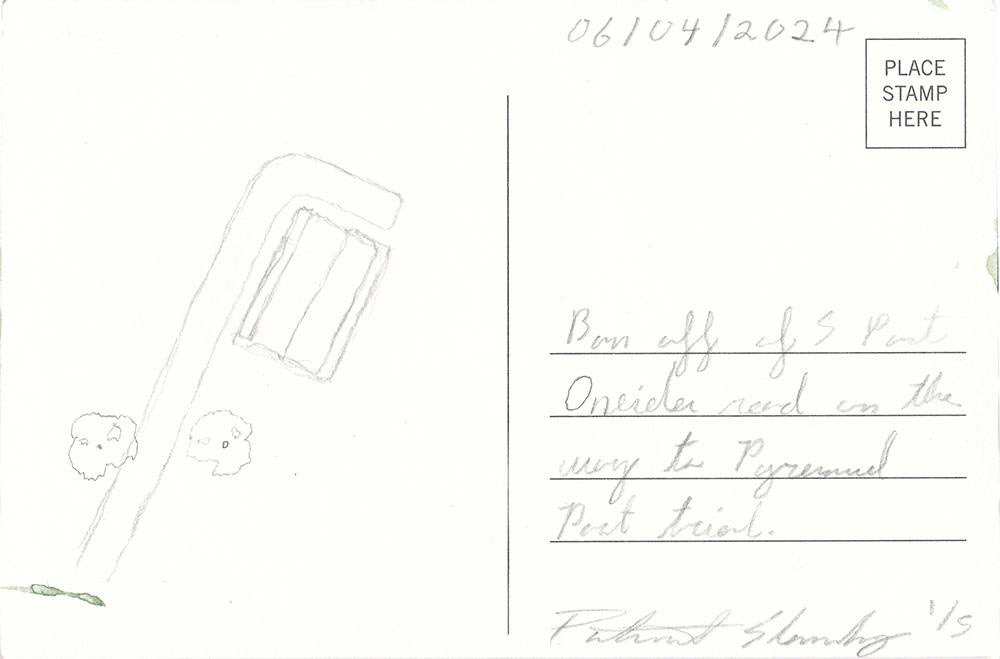 06/04/2024
PLACE
STAMP
HERE
Barn off of S Post
Oneida road on the
way to Pyramid
Post trail.
1/5